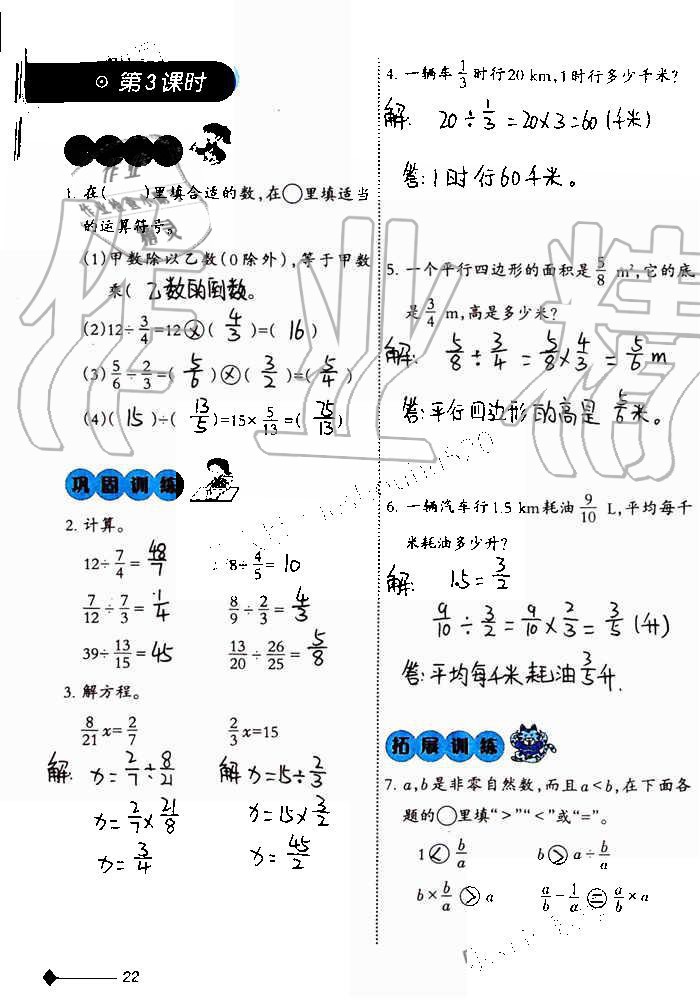 第3课时
1. 在(　　)里填合适的数,在○里填适当
的运算符号。
(1)甲数除以乙数(0除外),等于甲数
乘( 乙数的倒数。
(2)12÷3/4=12⊗(4/3)=(16)
(3)5/6÷2/3=(5/6)⊗(3/2)=(5/4)
(4)(15)÷(13/5)=15×5/13=(75/13)
巩固训练
2. 计算。
12÷7/4=48/7　8÷4/5=10
7/12÷7/3=1/4　8/9÷2/3=4/3
39÷13/15=45　13/20÷26/25=5/8
3. 解方程。
8/21x=2/7　2/3x=15
解: x=2/7÷8/21　解: x=15÷2/3
x=2/7×21/8　x=15×3/2
x=3/4　x=45/2
22
4. 一辆车1/3时行20 km,1时行多少千米?
解: 20÷1/3=20×3=60(千米)
答:1时行60千米。
5. 一个平行四边形的面积是5/8 m²,它的底
是3/4 m,高是多少米?
解: 5/8÷3/4=5/8×4/3=5/6m
答:平行四边形的高是5/6米。
6. 一辆汽车行1.5 km耗油9/10 L,平均每千
米耗油多少升?
解: 1.5=3/2
9/10÷3/2=9/10×2/3=3/5(升)
答:平均每千米耗油3/5升.
拓展训练
7. a,b是非零自然数,而且a<b,在下面各
题的○里填“>”“<”或“=”。
1<b/a　b>a÷b/a
b×b/a>a　a/b-1/a=a/b×a
作业精